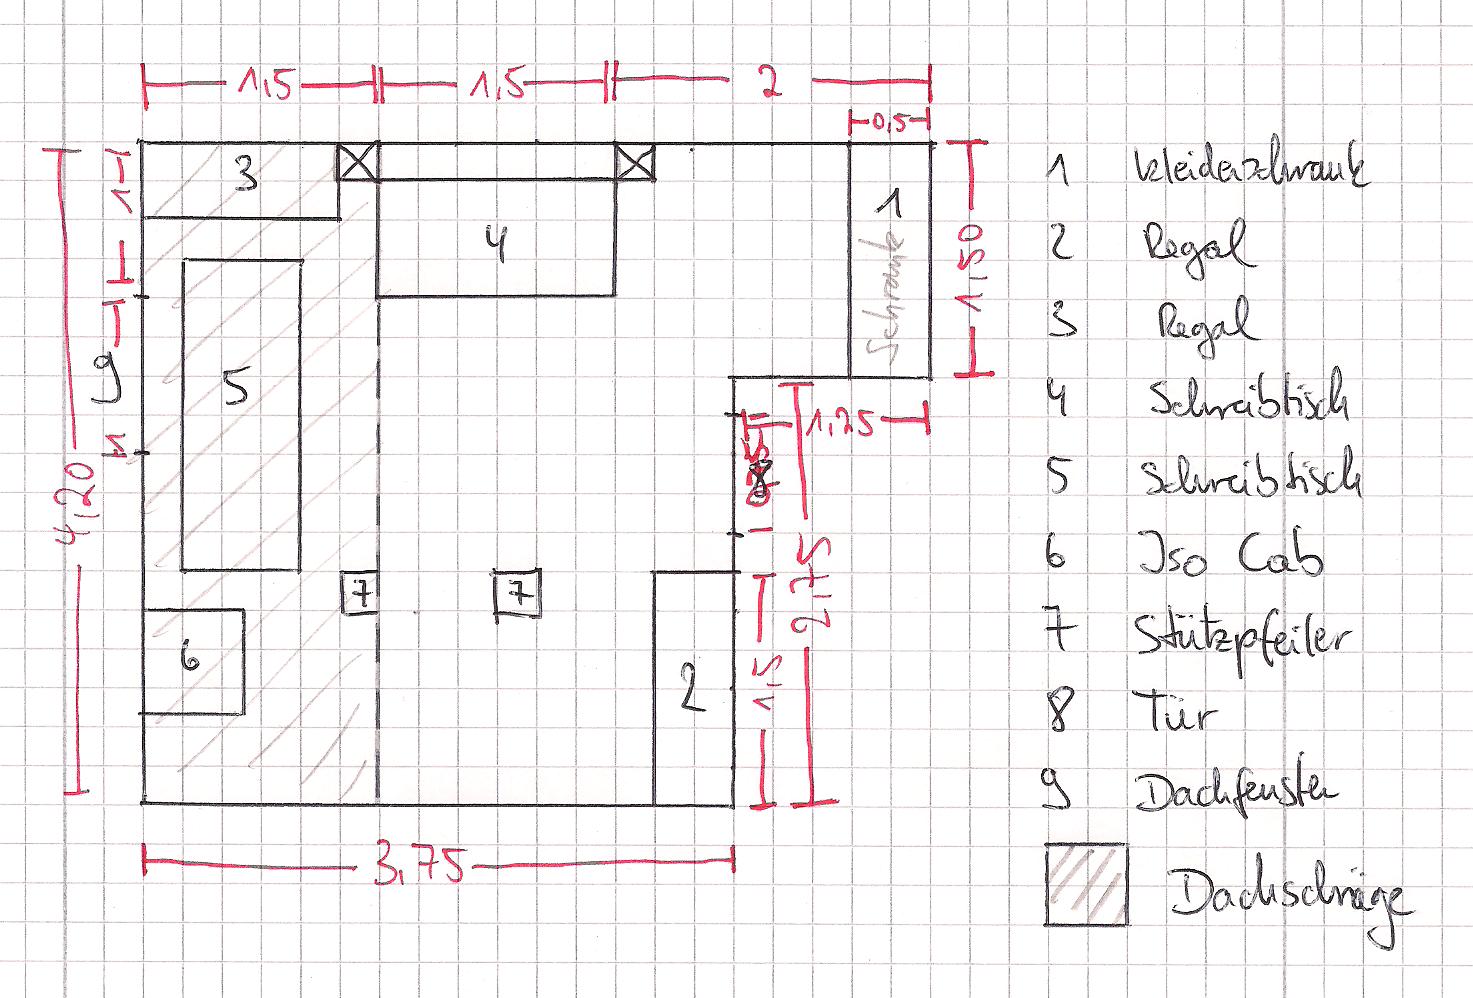 1,5 1,5 2
0,5
1
3
4
1
Schrank
1,50
9
5
1
4,20
1,25
0,75
8
2,75
7
7
6
2
1,5
3,75
1 Kleiderschrank
2 Regal
3 Regal
4 Schreibtisch
5 Schreibtisch
6 Iso Cab
7 Stützpfeiler
8 Tür
9 Dachfenster
Dachschräge